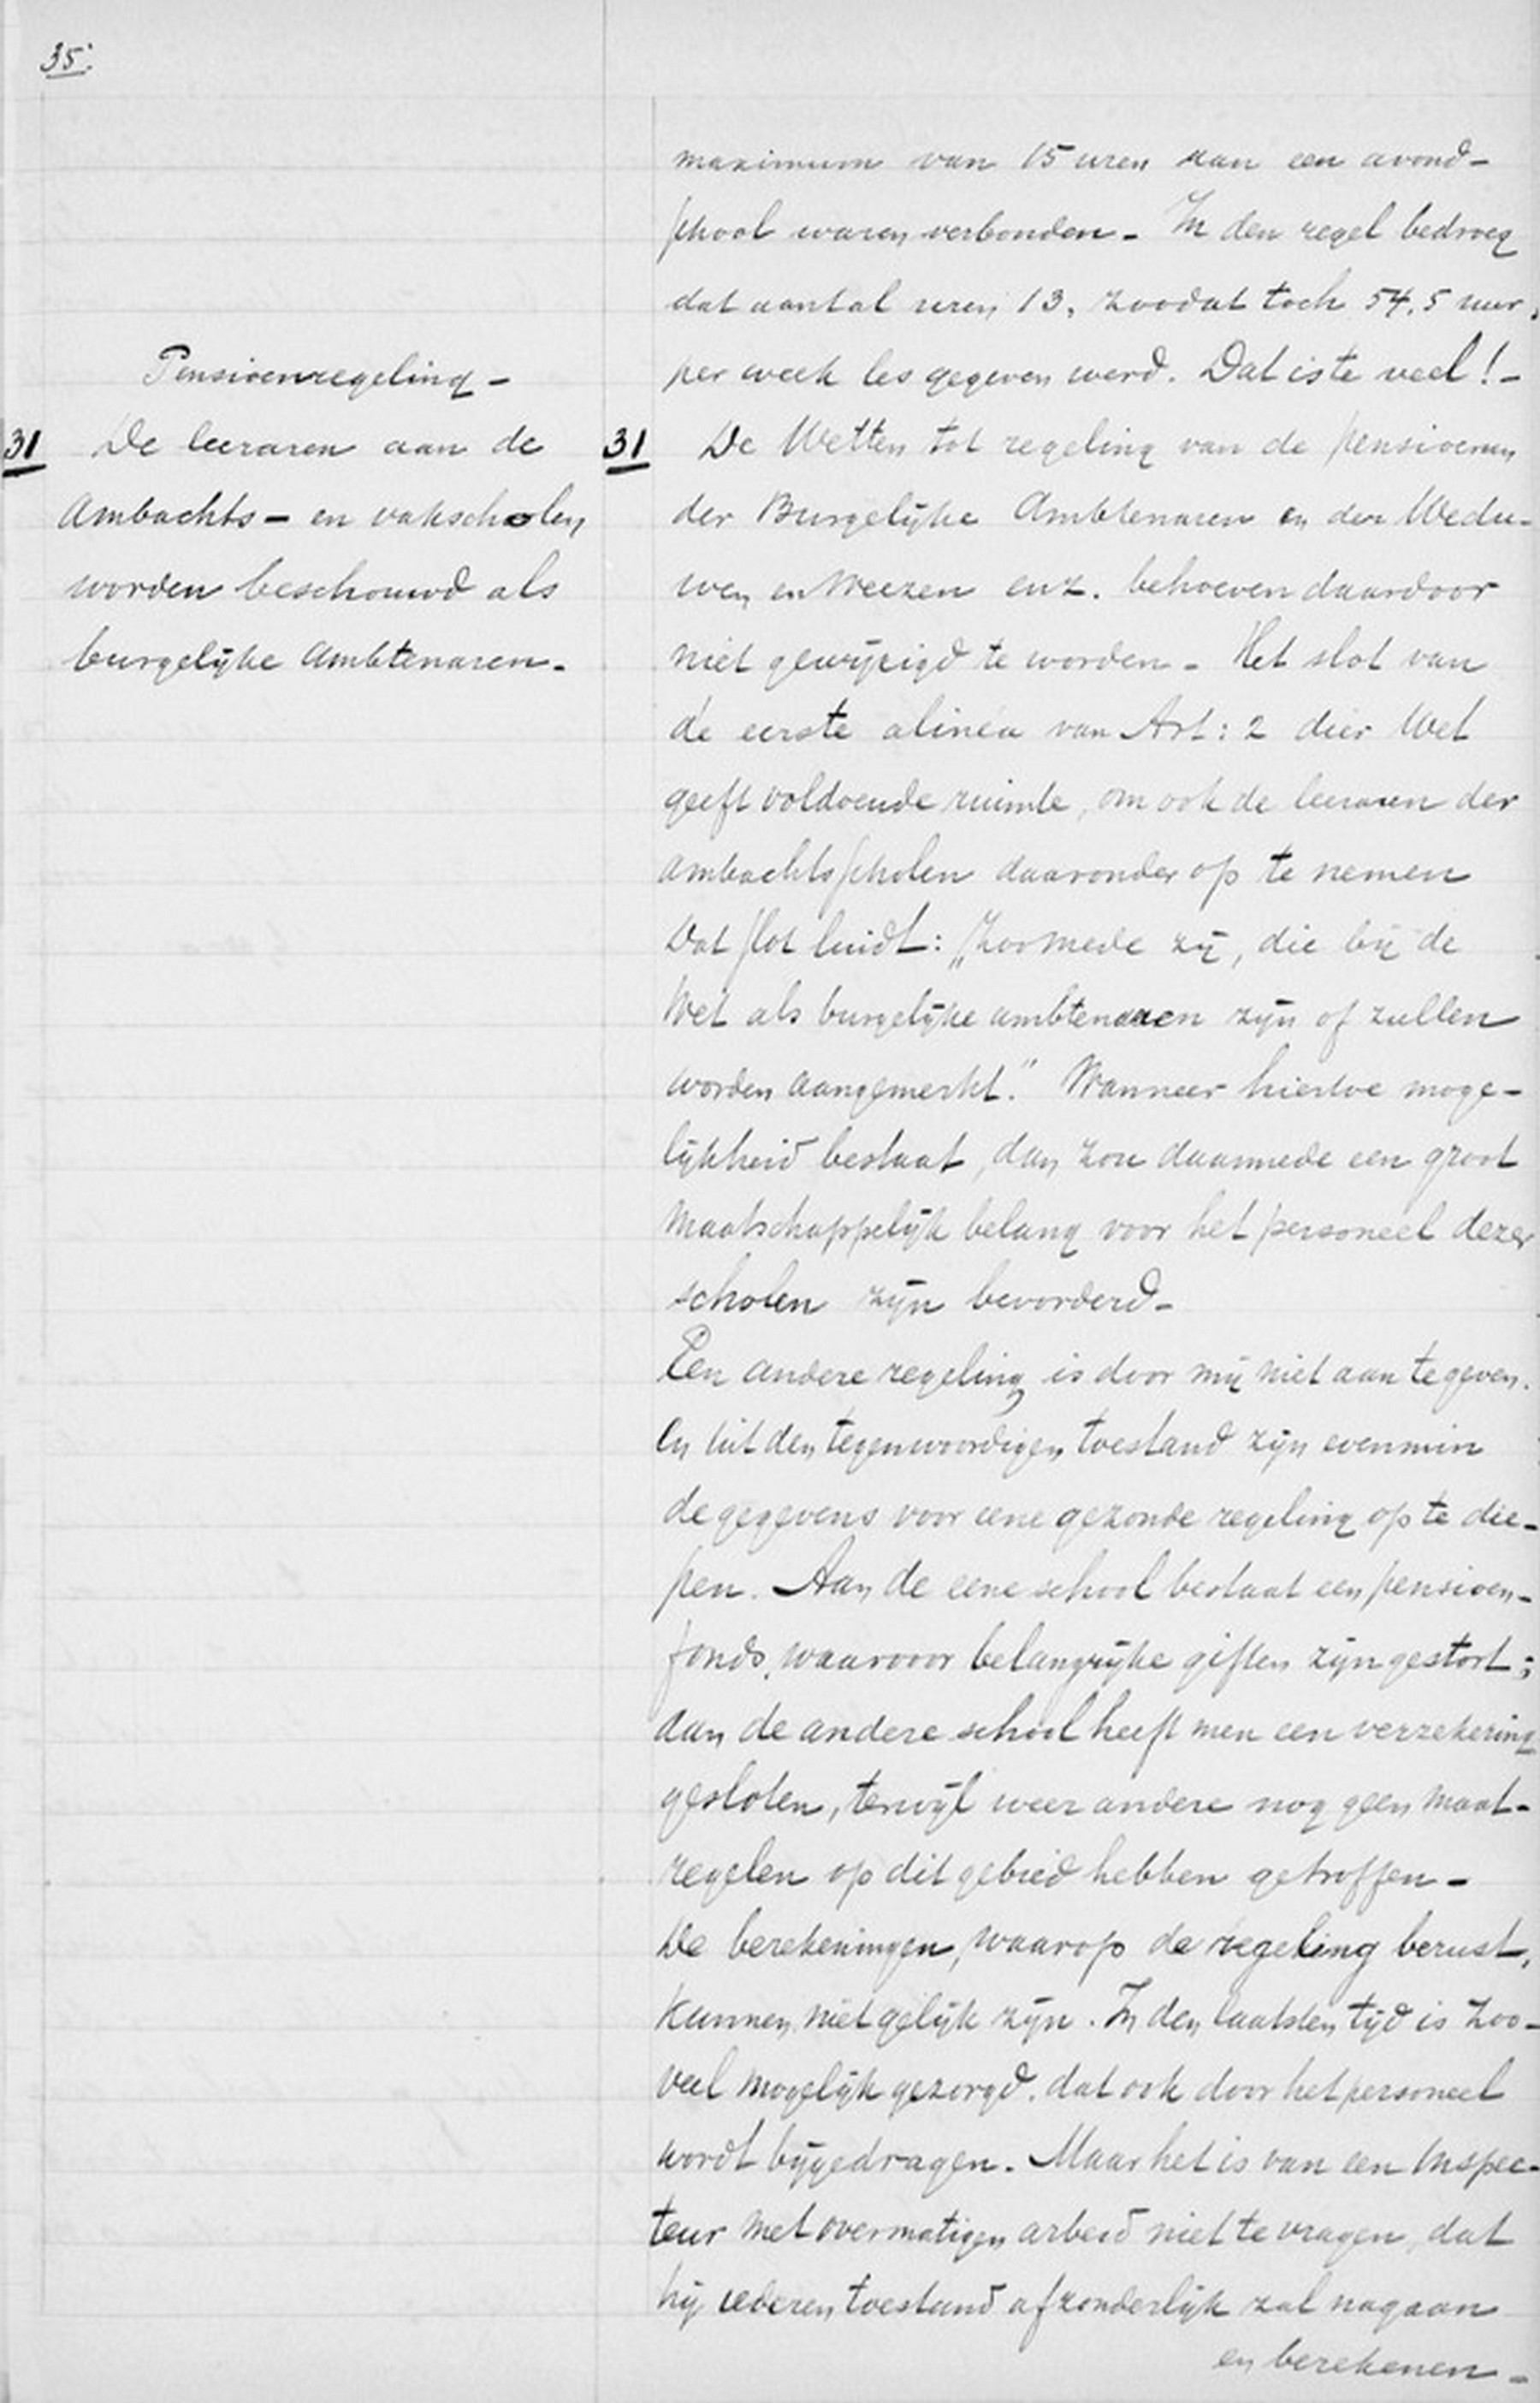 35.
maximum van 15 uren aan een avond-
school waren verbonden - In den regel bedroeg
dat aantal uren 13, zoodat toch 54,5 uur,
per week les gegeven werd. Dat is te veel! -
Pensioenregeling -
31 De leeraren aan de
Ambachts - en vakscholen
worden beschouwd als
burgelijke Ambtenaren -
31 De Wetten tot regeling van de pensioenen
der Burgelijke Ambtenaren en der Wedu-
wen en Weezen enz. behoeven daardoor
niet gewijzigd te worden - Het slot van
de eerste alinéa van Art: 2 dier Wet
geeft voldoende ruimte, om ook de leeraren der
ambachtsscholen daaronder op te nemen
Dat slot luidt: „Zoomede zij, die bij de
Wet als burgelijke ambtenaren zijn of zullen
worden aangemerkt." Wanneer hiertoe moge-
lijkheid bestaat, dan zou daarmede een groot
Maatschappelijk belang voor het personeel dezer
scholen zijn bevorderd -
Een andere regeling is door mij niet aan te geven.
En uit den tegenwoordigen toestand zijn evenmin
de gegevens voor eene gezonde regeling op te die-
pen. Aan de eene school bestaat een pensioen-
fonds, waarvoor belangrijke giften zijn gestort;
aan de andere school heeft men een verzekering
gesloten, terwijl weer andere nog geen maat-
regelen op dit gebied hebben getroffen -
De berekeningen, waarop de regeling berust,
kunnen niet gelijk zijn. In den laatsten tijd is zoo-
veel mogelijk gezorgd, dat ook door het personeel
wordt bijgedragen. Maar het is van een Inspec-
teur met overmatigen arbeid niet te vragen, dat
hij iederen toestand afzonderlijk zal nagaan
en berekenen -